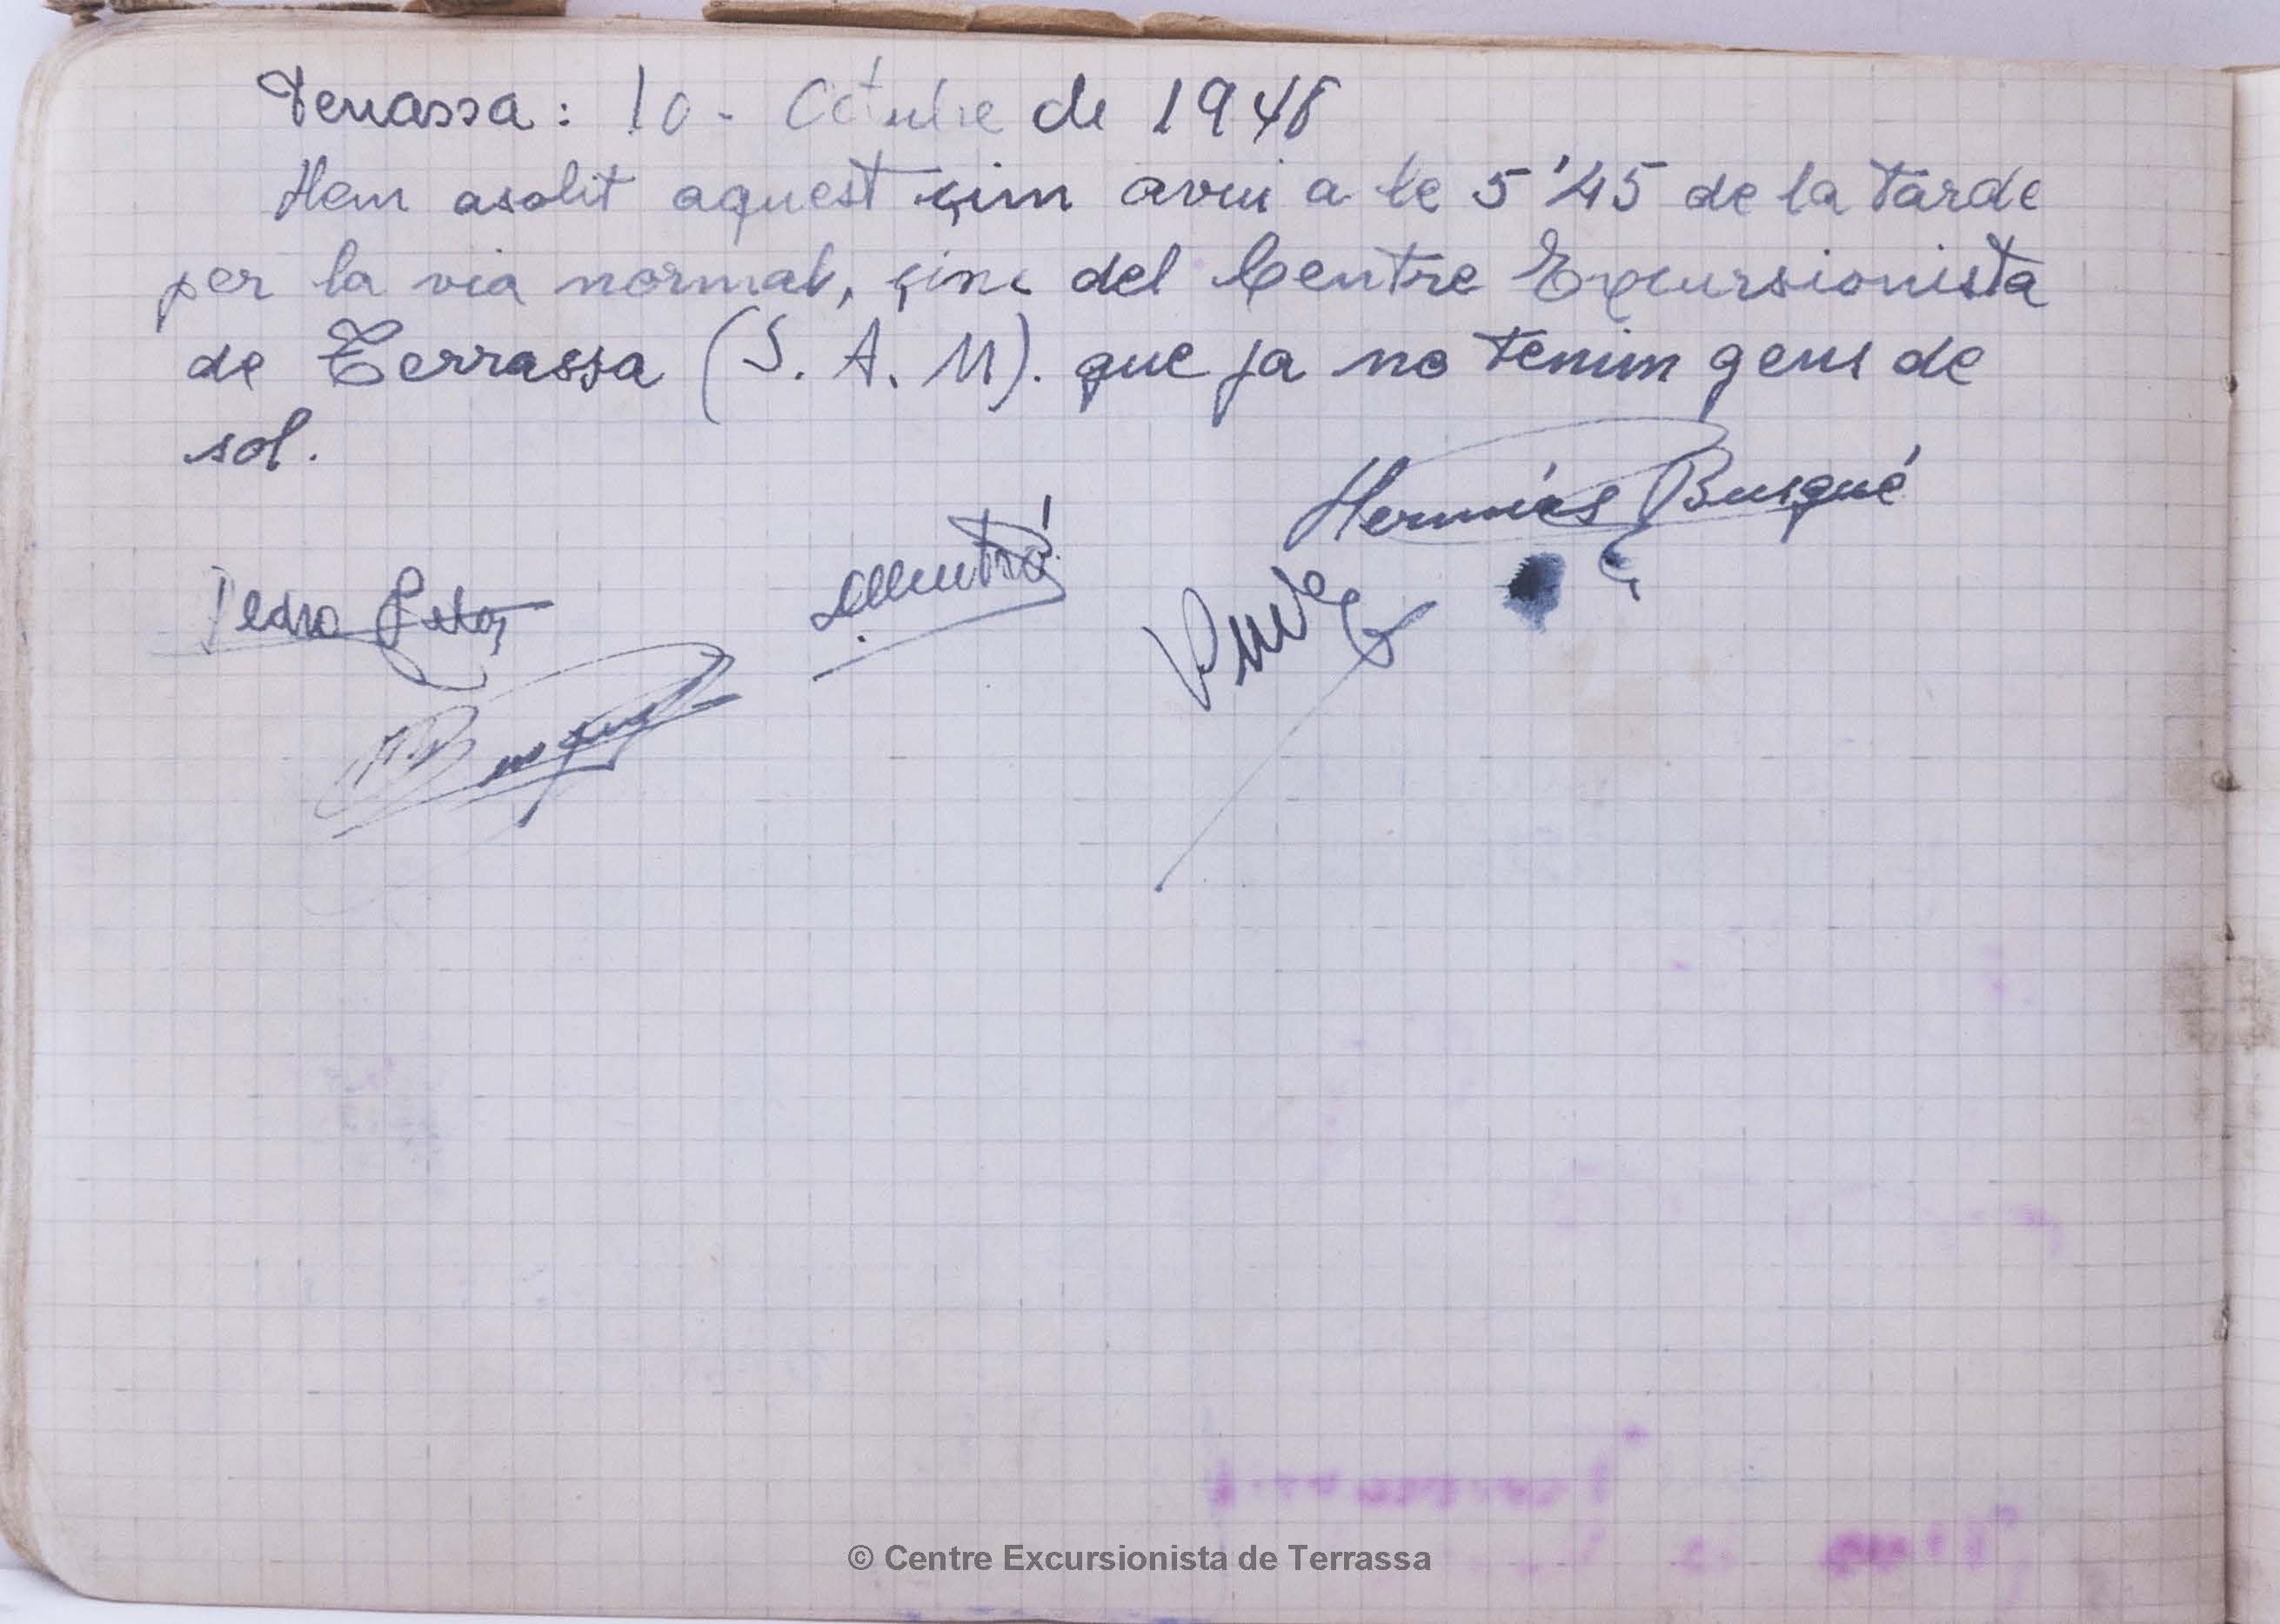 Terrassa: 10 - Octubre de 1948
Hem asolit aquest çim avui a le 5'45 de la tarde
per la via normal, çinc del Centre Excursionista
de Terrassa (S. A. M). que ja no tenim gens de
sol.
Hermies Busqué
Pedro
© Centre Excursionista de Terrassa